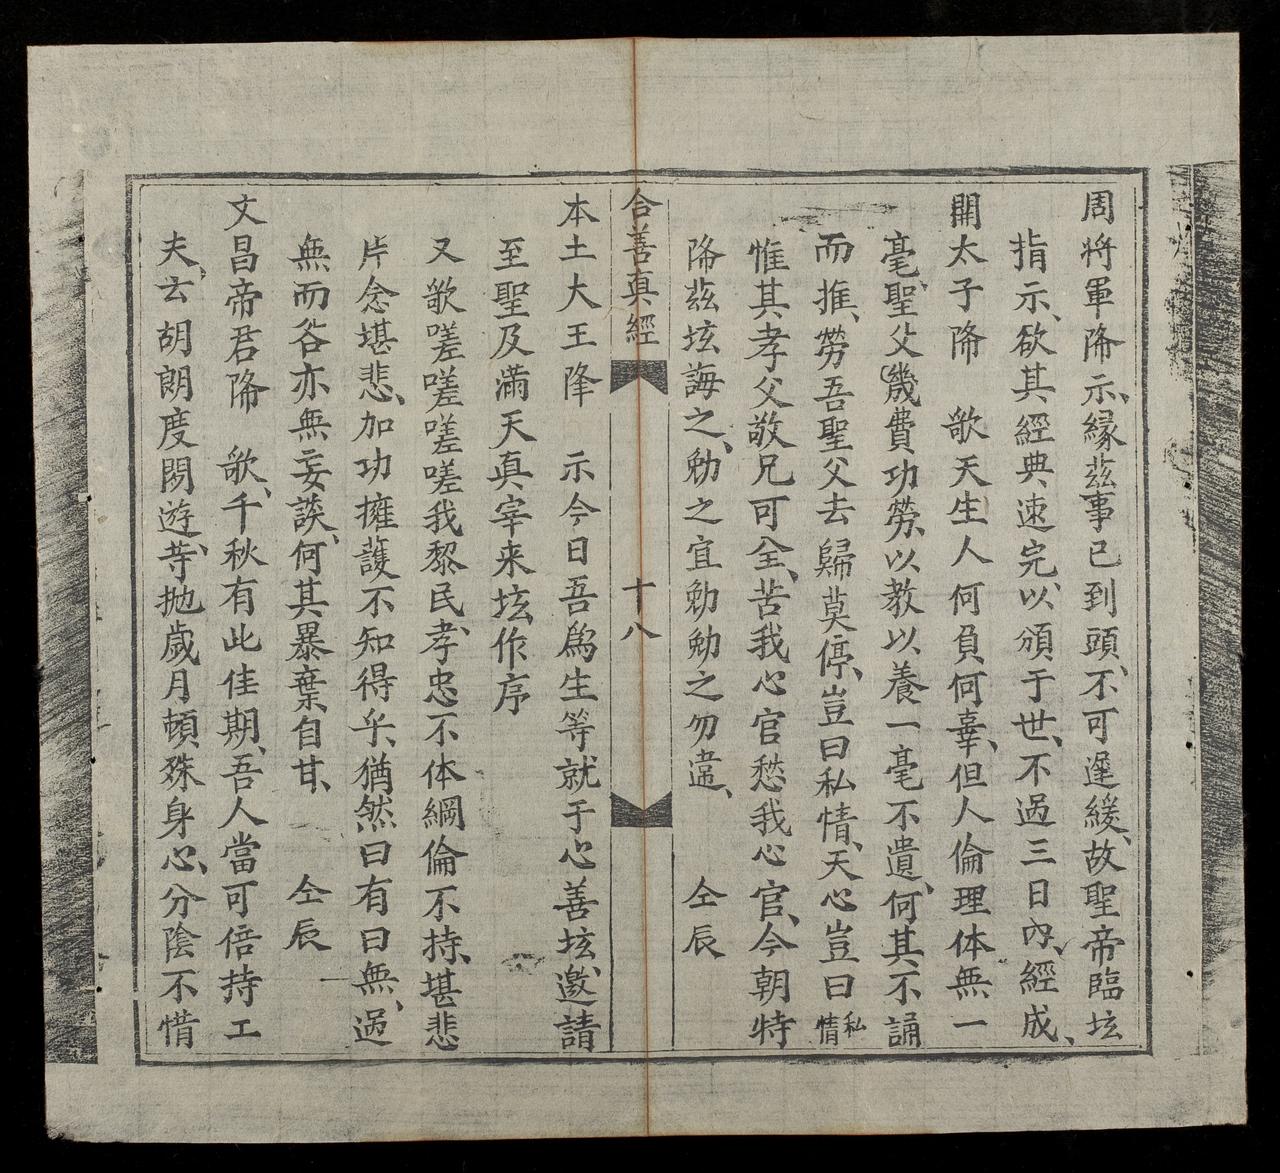 周將軍降示、緣茲事已到頭、不可遲緩、故聖帝臨坛
指示、欲其經典速完、以頒于世、不過三日內、經成、
開太子降　歌天生人何負何辜、但人倫理体無一
毫、聖父幾費功勞、以教以養一毫不遺、何其不誦
而推、勞吾聖父去歸莫停、豈曰私情、天心豈曰私情
惟其孝父敬兄可全、苦我心官愁我心官、今朝特
降茲坛誨之、勉之宜勉勉之勿違、　仝辰
合善真經　十八
本土大王降　示今日吾爲生等就于心善坛、邀請
至聖及滿天真宰来坛作序
又歌嗟嗟嗟嗟我黎民、孝忠不体綱倫不持、堪悲
片念堪悲、加功擁護不知得乎、猶然曰有曰無、過
無而咎亦無妄談、何其暴棄自甘、　仝辰
文昌帝君降　歌、千秋有此佳期、吾人當可倍持工
夫、云胡朗度閒遊、等抛歲月頓殊身心、分陰不惜